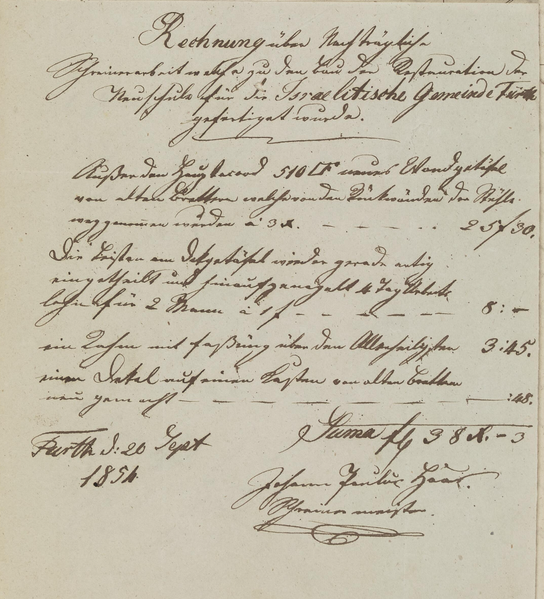 Rechnung über Nachträgliche
Schreinerarbeit welche zu den bau der Restauration der
Neuschule für die Israelitische Gemeinde Fürth
gefertiget wurde.
Außer den Hauptaccord 510 neues Wandgetäfel
von alten Brettern welche von den Rückwänden der Stühle
weggenommen wurden à 3 x. 25 f 30.
Die Leisten am Dekgetäfel wieder gerade
eingetheilt und hinaufgenagelt 4 Tag Arbeits
lohn für 2 Mann à 1 f 8: –
ein Rahm mit faßung über den Allerheiligsten 3:45.
einen Dekel auf einen Kasten von alten Brettern
neu gemacht :48.
Suma f 38 x. – 3
Fürth d: 20 Sept
1854
Johann Paulus Haas.
Schreinermeister.